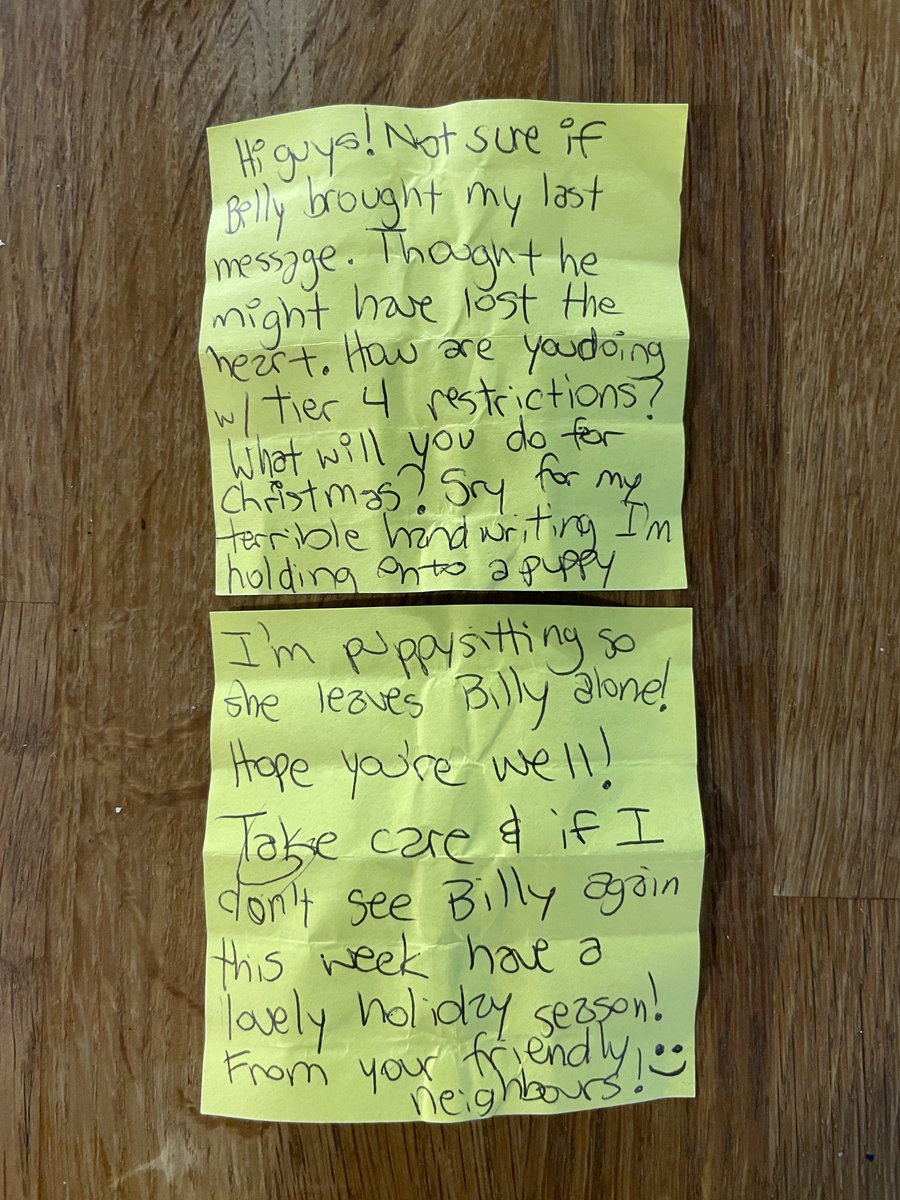 Hi guys! Not sure if
Billy brought my last
message. Thought he
might have lost the
heart. How are you doing
w/ tier 4 restrictions?
What will you do for
Christmas? Sry for my
terrible handwriting I'm
holding onto a puppy
I'm puppysitting so
she leaves Billy alone!
Hope you're well!
Take care & if I
don't see Billy again
this week have a
lovely holiday season!
From your friendly
neighbours! :)